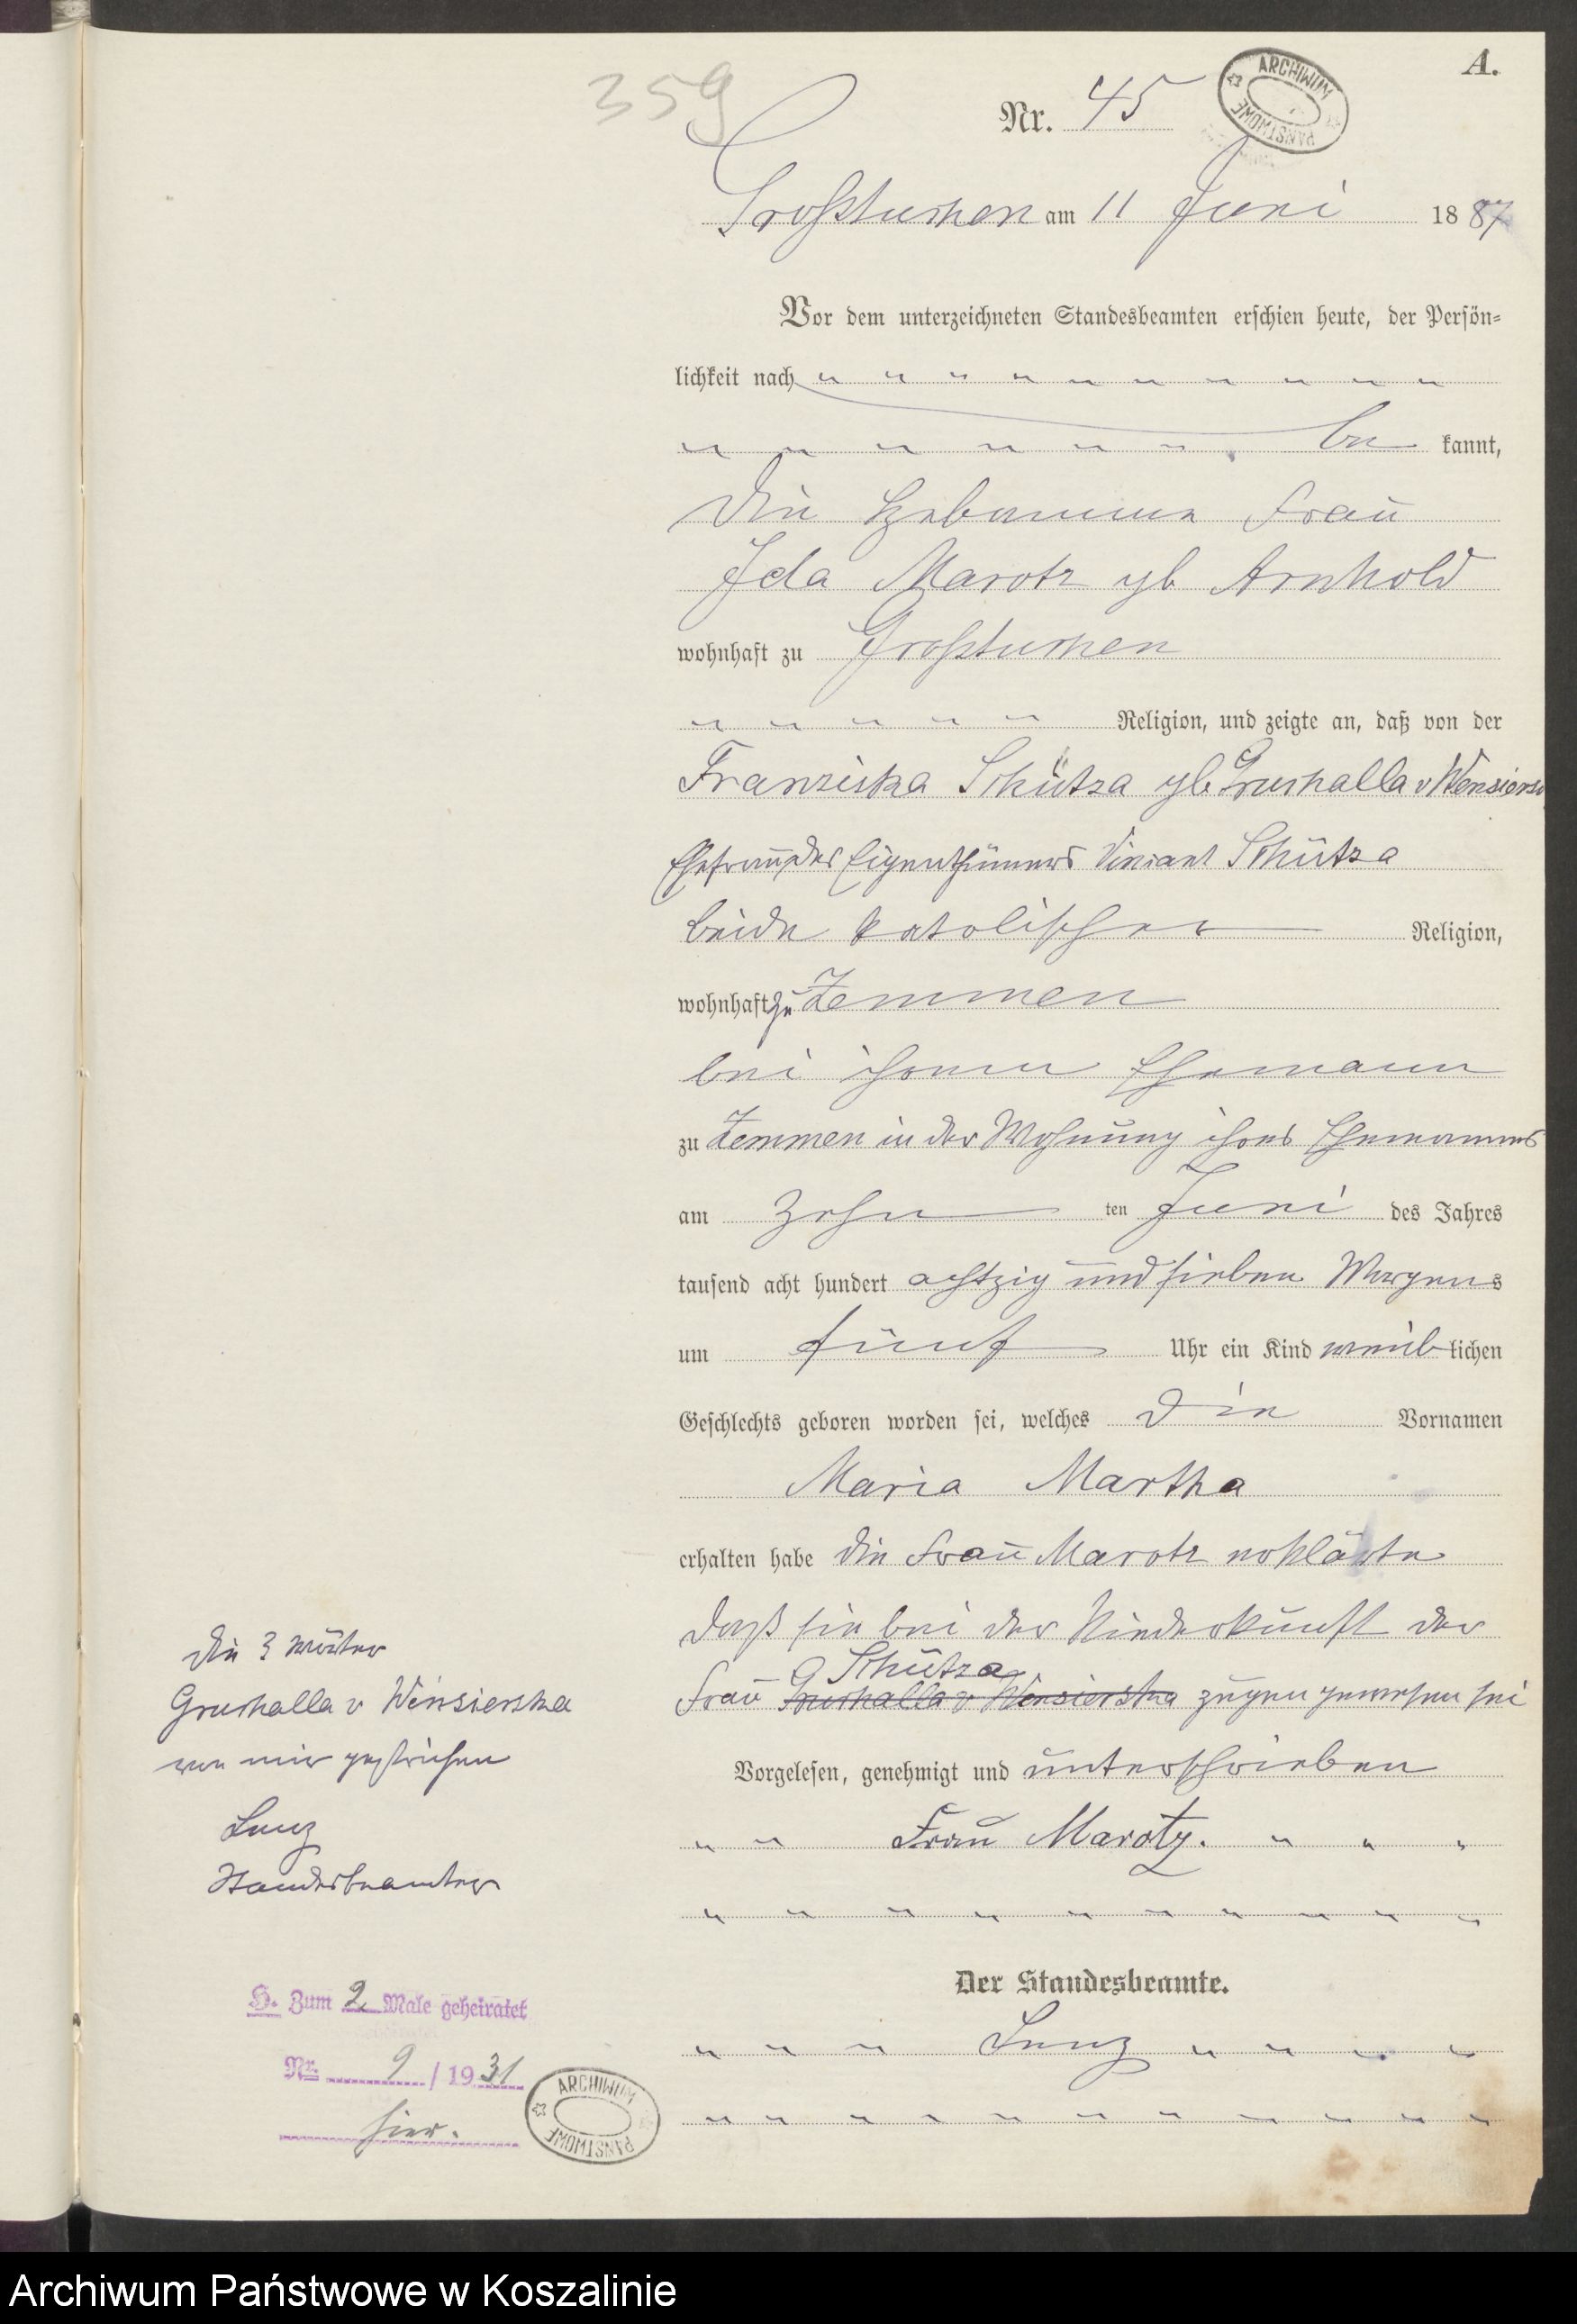 359
A.
Nr. 45
ARCHIWUM PAŃSTWOWE
Großtuchen am 11 Juni 1887
Vor dem unterzeichneten Standesbeamten erschien heute, der Persön-
lichkeit nach
be kannt,
die Hebamme Frau
Ida Marotz gb Arnhold
wohnhaft zu Großtuchen
Religion, und zeigte an, daß von der
Franziska Schütza gb. Gruchalla v Wensiersk
Ehefrau des Eigenthümers Vinzent Schütza
beide katolischer Religion,
wohnhaft zu Zemmen
bei ihrem Ehemann
zu Zemmen in der Wohnung ihres Ehemannes
am zehn ten Juni des Jahres
tausend acht hundert achtzig und sieben Morgens
um fünf Uhr ein Kind weib lichen
Geschlechts geboren worden sei, welches die Vornamen
Maria Martha
erhalten habe die Frau Marotz erklärte
daß sie bei der Niederkunft der
Schütza
Frau Gruchalla v Wensierska zugen gewesen sei
Vorgelesen, genehmigt und unterschrieben
Frau Marotz.
Der Standesbeamte.
Lenz
die 3 Wörter
Gruchalla v Wensierska
von mir gestrichen
Lenz
Standesbeamter
H. Zum 2 Male geheiratet
Nr. 9 / 1931
hier.
ARCHIWUM PAŃSTWOWE
Archiwum Państwowe w Koszalinie